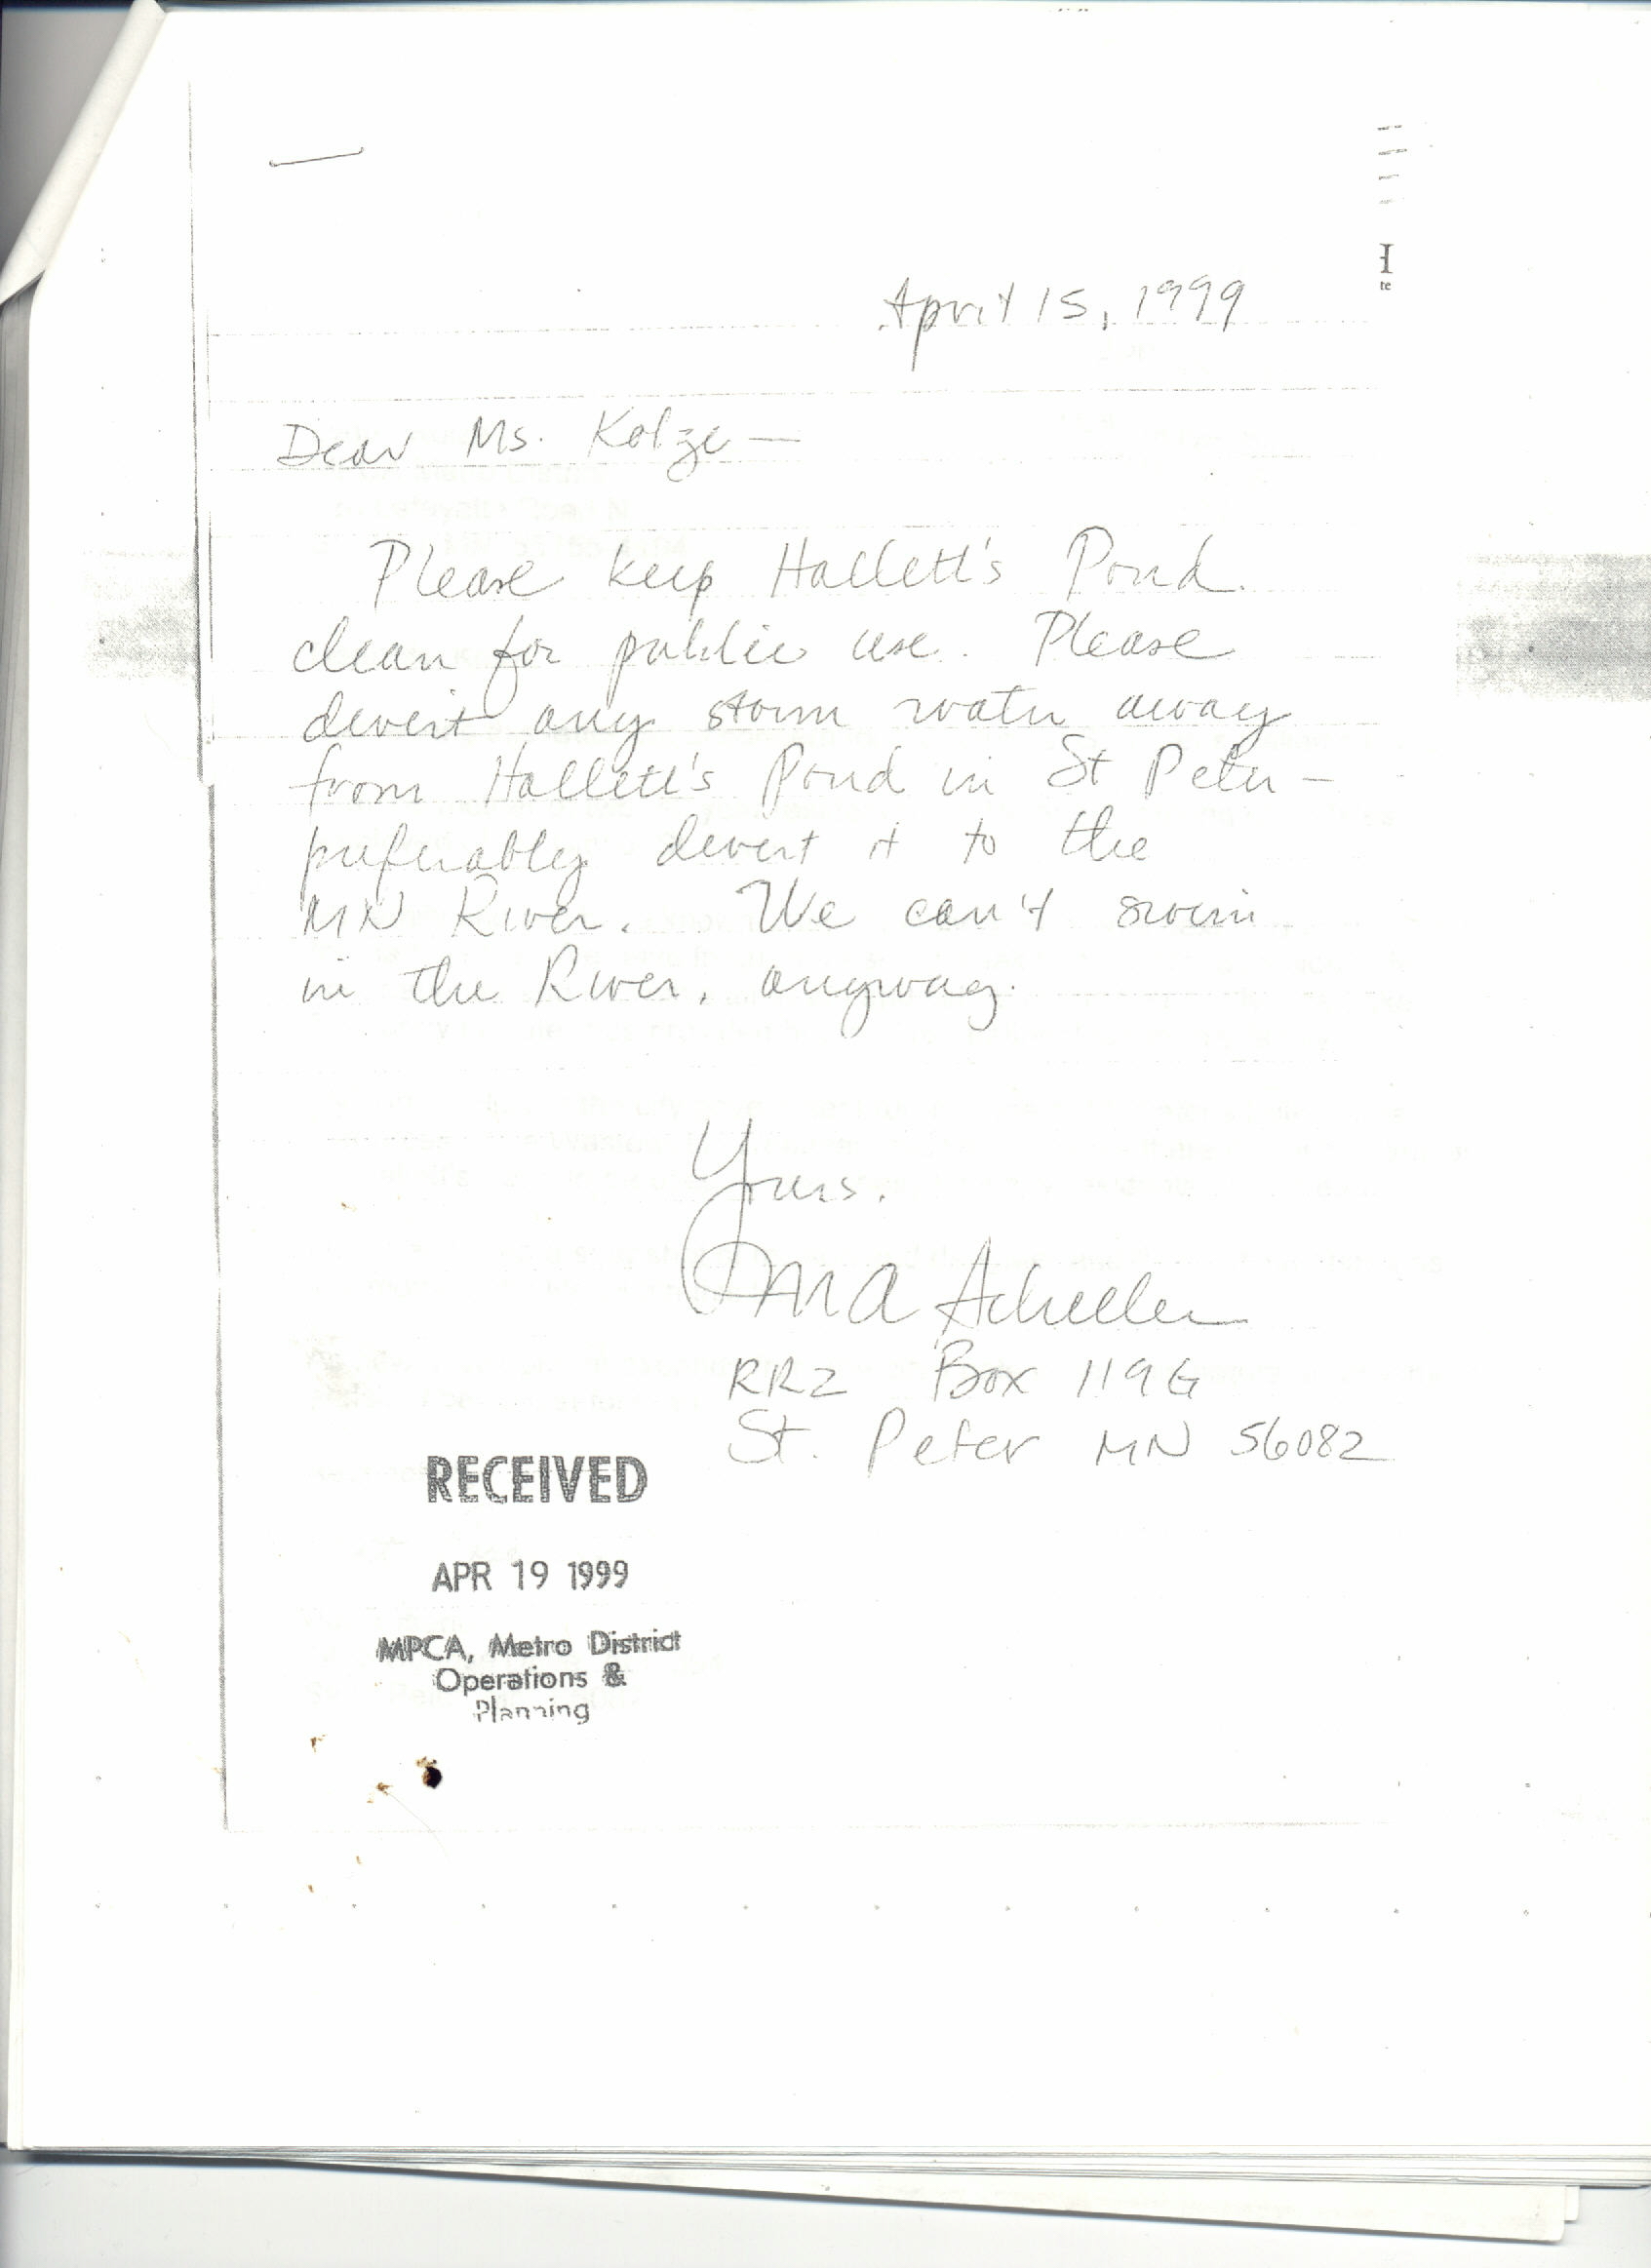 April 15, 1999
Dear Ms. Kotze —
Please keep Hallett's Pond
clean for public use. Please
divert any storm water away
from Hallett's Pond in St Peter –
preferably divert it to the
MN River. We can't swim
in the River, anyway.
Yours,
Scheller
RR2 Box 119G
St. Peter MN 56082
RECEIVED
APR 19 1999
MPCA, Metro District
Operations &
Planning